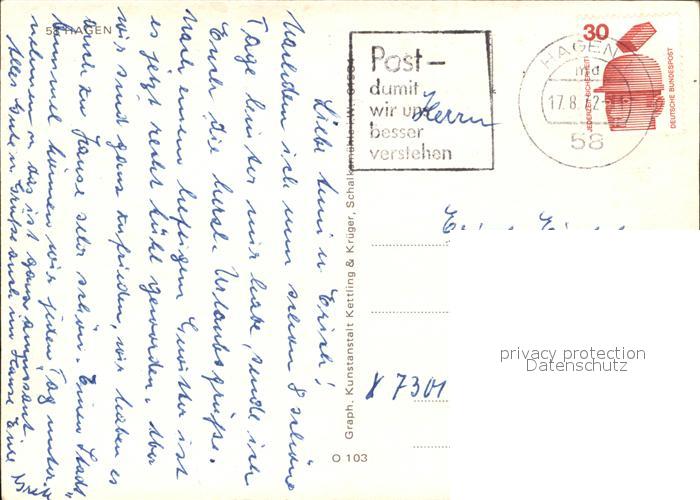 58 HAGEN
Liebe Leni u. Erich!
Nachdem ich nun schon 8 schöne
Tage hinter mir habe, sende ich
Euch die herzl. Urlaubsgrüße.
Nach einem heftigen Gewitter ist
es jetzt recht kühl geworden. Aber
wir sind ganz zufrieden, wir haben es
auch zu Hause sehr schön. Einen Stadt
bummel können wir jeden Tag unter-
nehmen u. das ist ganz amüsant.
Alles Gute u. Gruß auch an Hause Eure
Graph. Kunstanstalt Kettling & Krüger, Schalksmühle i.W.
O 103
Post-
damit
wir uns
besser
verstehen
HAGEN
md
17.8.72
58
30
JEDERZEIT SICHERHEIT
DEUTSCHE BUNDESPOST
Herrn
X 7301
privacy protection
Datenschutz